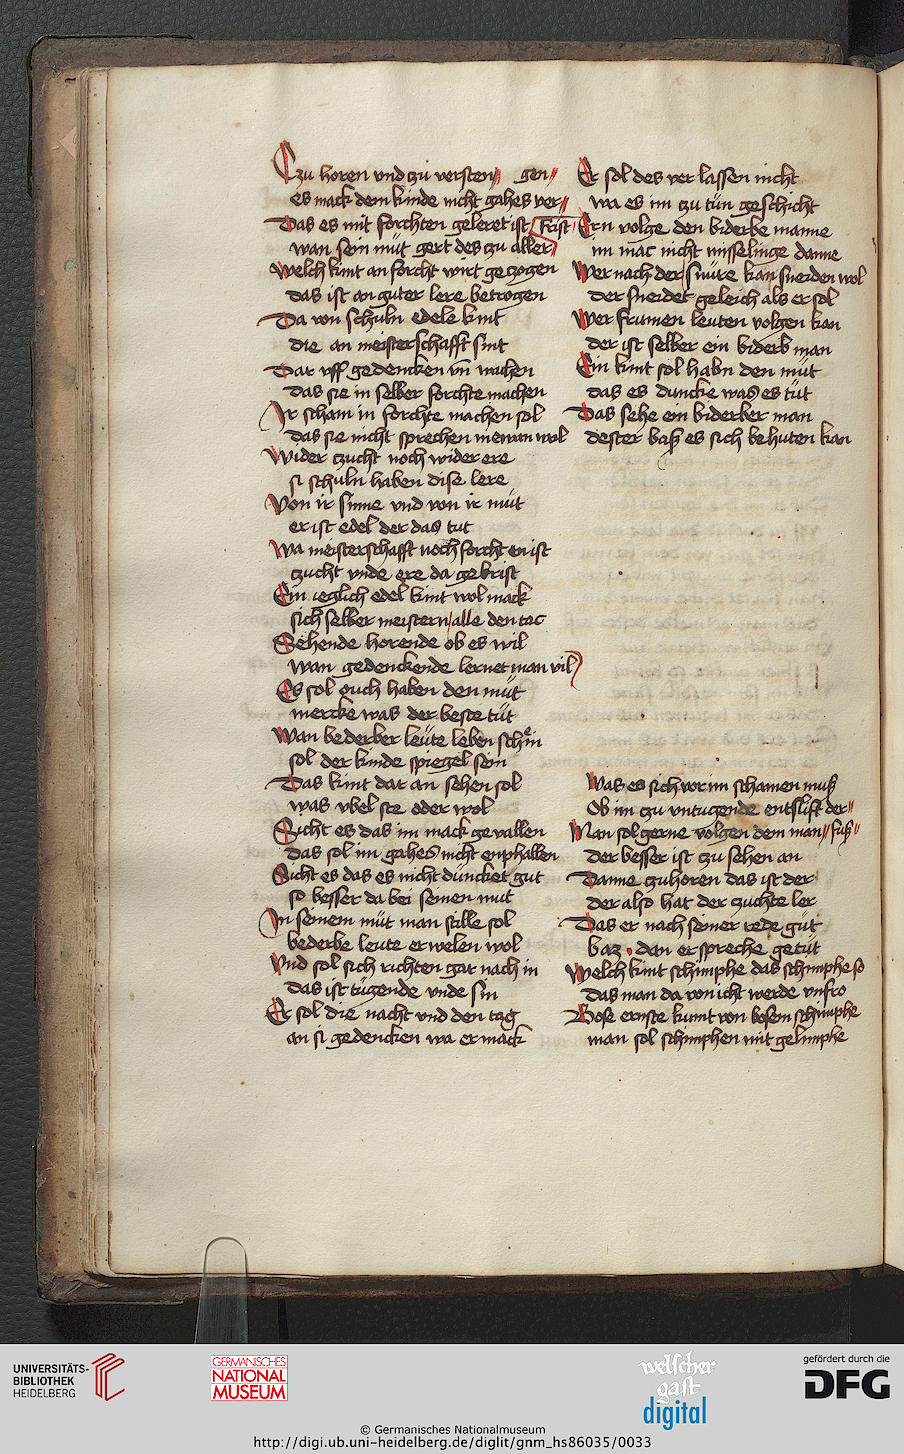 Czu horen vnd zu versten gen
es mack dem kinde nicht gahes ver
Das es mit forchten geleret ist krist
wan sein mut gert des zu aller
Welch kint an forcht wirt geczogen
das ist an guter lere betrogen
Da von schuln edele kint
die an meisterschafft sint
Dar vff gedencken vn̄ wachen
das sie in selber forchte machen
Ir scham in forchte machen sol
das sie nicht sprechen wol
Wider czucht noch wider ere
si schuln haben dise lere
Von ir sinne vnd von ir mut
er ist edel der das tut
Wa meisterschafft noch forcht en ist
czucht vnde ere da gebrist
Ein ieglich edel kint wol mack
sich selber meistern alle den tac
Sehende horende ob es wil
wan gedenckende lernet man vil
Es sol ouch haben den müt
mercke was der beste tüt
Wan bederber leüte leben schein
sol der kinde spiegel sein
Das kint dar an sehen sol
was vbel ste oder wol
Sicht es das im mack gevallen
das sol im gahes nicht enphallen
Sicht es das es nicht düncket gut
so besser da bei seinen mut
In seinem müt man stille sol
bederbe leute erwelen wol
Vnd sol sich richten gar nach in
das ist tugende vnde sin
Er sol die nacht vnd den tag
an si gedencken wa er mack
Er sol des ver lassen nicht
wa es im tzu tün geschicht
Ern volge den biderbe manne
im mac nicht misselinge danne
Wer nach der snüre kan sneiden wol
der sneidet geleich als er sol
Wer frumen leuten volgen kan
der ist selber ein biderb man
Ein kint sol habn den müt
das es duncke was es tüt
Das sehe ein biderber man
dester baß es sich behuten kan
Was es sich vor im schamen muß
Ob im zu vntugende entslift der
Man sol gerne volgen dem man fuß
der besser ist zu sehen an
Danne zuhoren das ist der
der also hat der zuchte ler
Das er nach seiner rede gut
baz dan er spreche getüt
Welch kint schimphe das schimphe so
das man da von icht werde vnfro
Bose ernste kumt von bosem schimphe
man sol schimphen mit gelimphe
UNIVERSITÄTS-
BIBLIOTHEK
HEIDELBERG
GERMANISCHES
NATIONAL
MUSEUM
welscher
gast
digital
gefördert durch die
DFG
© Germanisches Nationalmuseum
http://digi.ub.uni-heidelberg.de/diglit/gnm_hs86035/0033